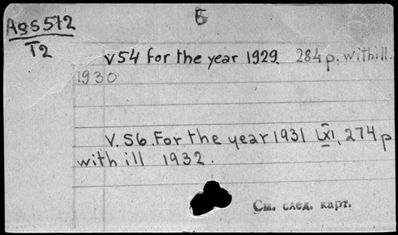 5
Ags572
T2
v54 for the year 1929 284 p. with ill.
1930
V. 56. For the year 1931 LXI, 274 p
with ill 1932.
См. след. карт.